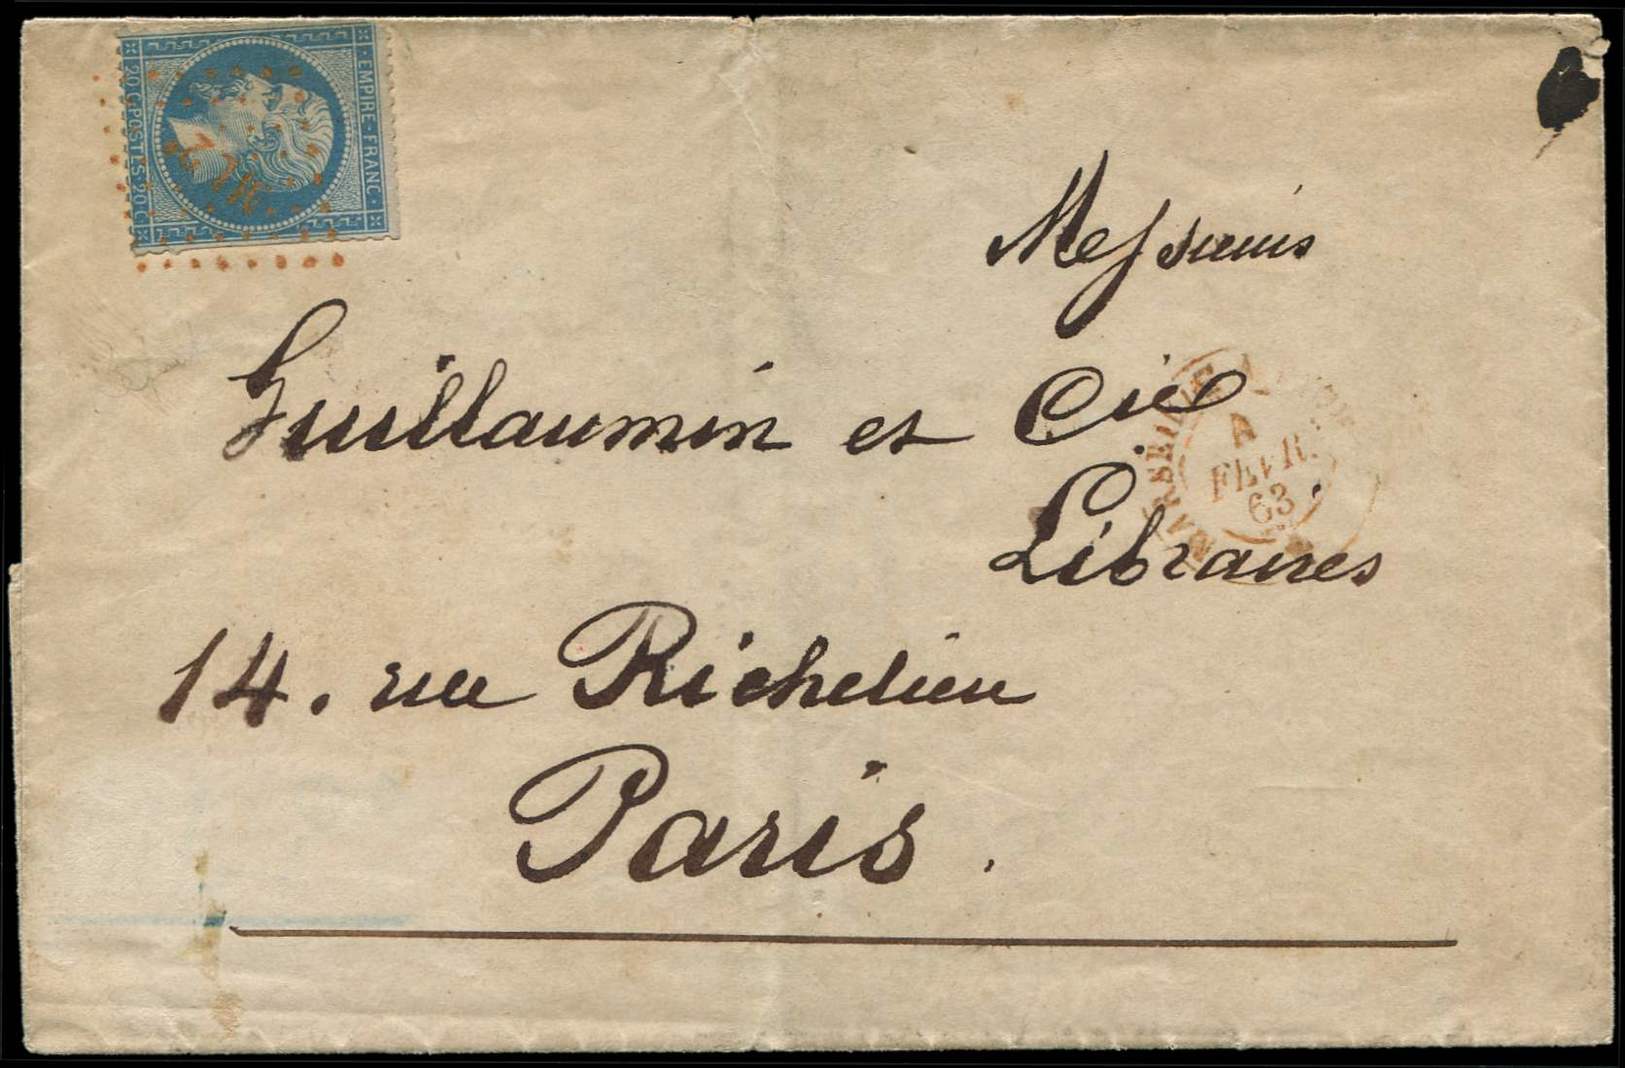 EMPIRE · FRANC ·
20 · C · POSTES · 20 · C
Messieurs
Guillaumin et Cie
Libraires
14. rue Richelieu
Paris.
MARSEILLE
A
FEVR.
63